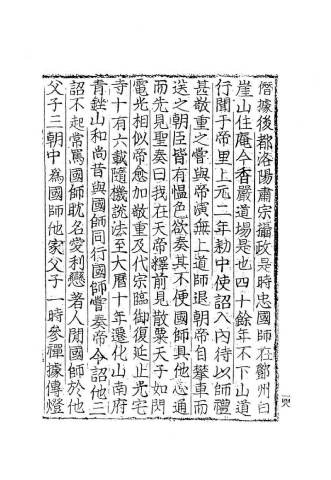 僭據後都洛陽肅宗攝政是時忠國師在鄧州白
崖山住庵今香嚴道場是也四十餘年不下山道
行聞于帝里上元二年勅中使詔入內待以師禮
甚敬重之嘗與帝演無上道師退朝帝自攀車而
送之朝臣皆有慍色欲奏其不便國師具他心通
而先見聖奏曰我在天帝釋前見散粟天子如閃
電光相似帝愈加敬重及代宗臨御復延止光宅
寺十有六載隨機說法至大曆十年遷化山南府
青銼山和尚昔與國師同行國師嘗奏帝令詔他三
詔不起常罵國師耽名愛利戀著人間國師於他
父子三朝中為國師他家父子一時參禪據傳燈